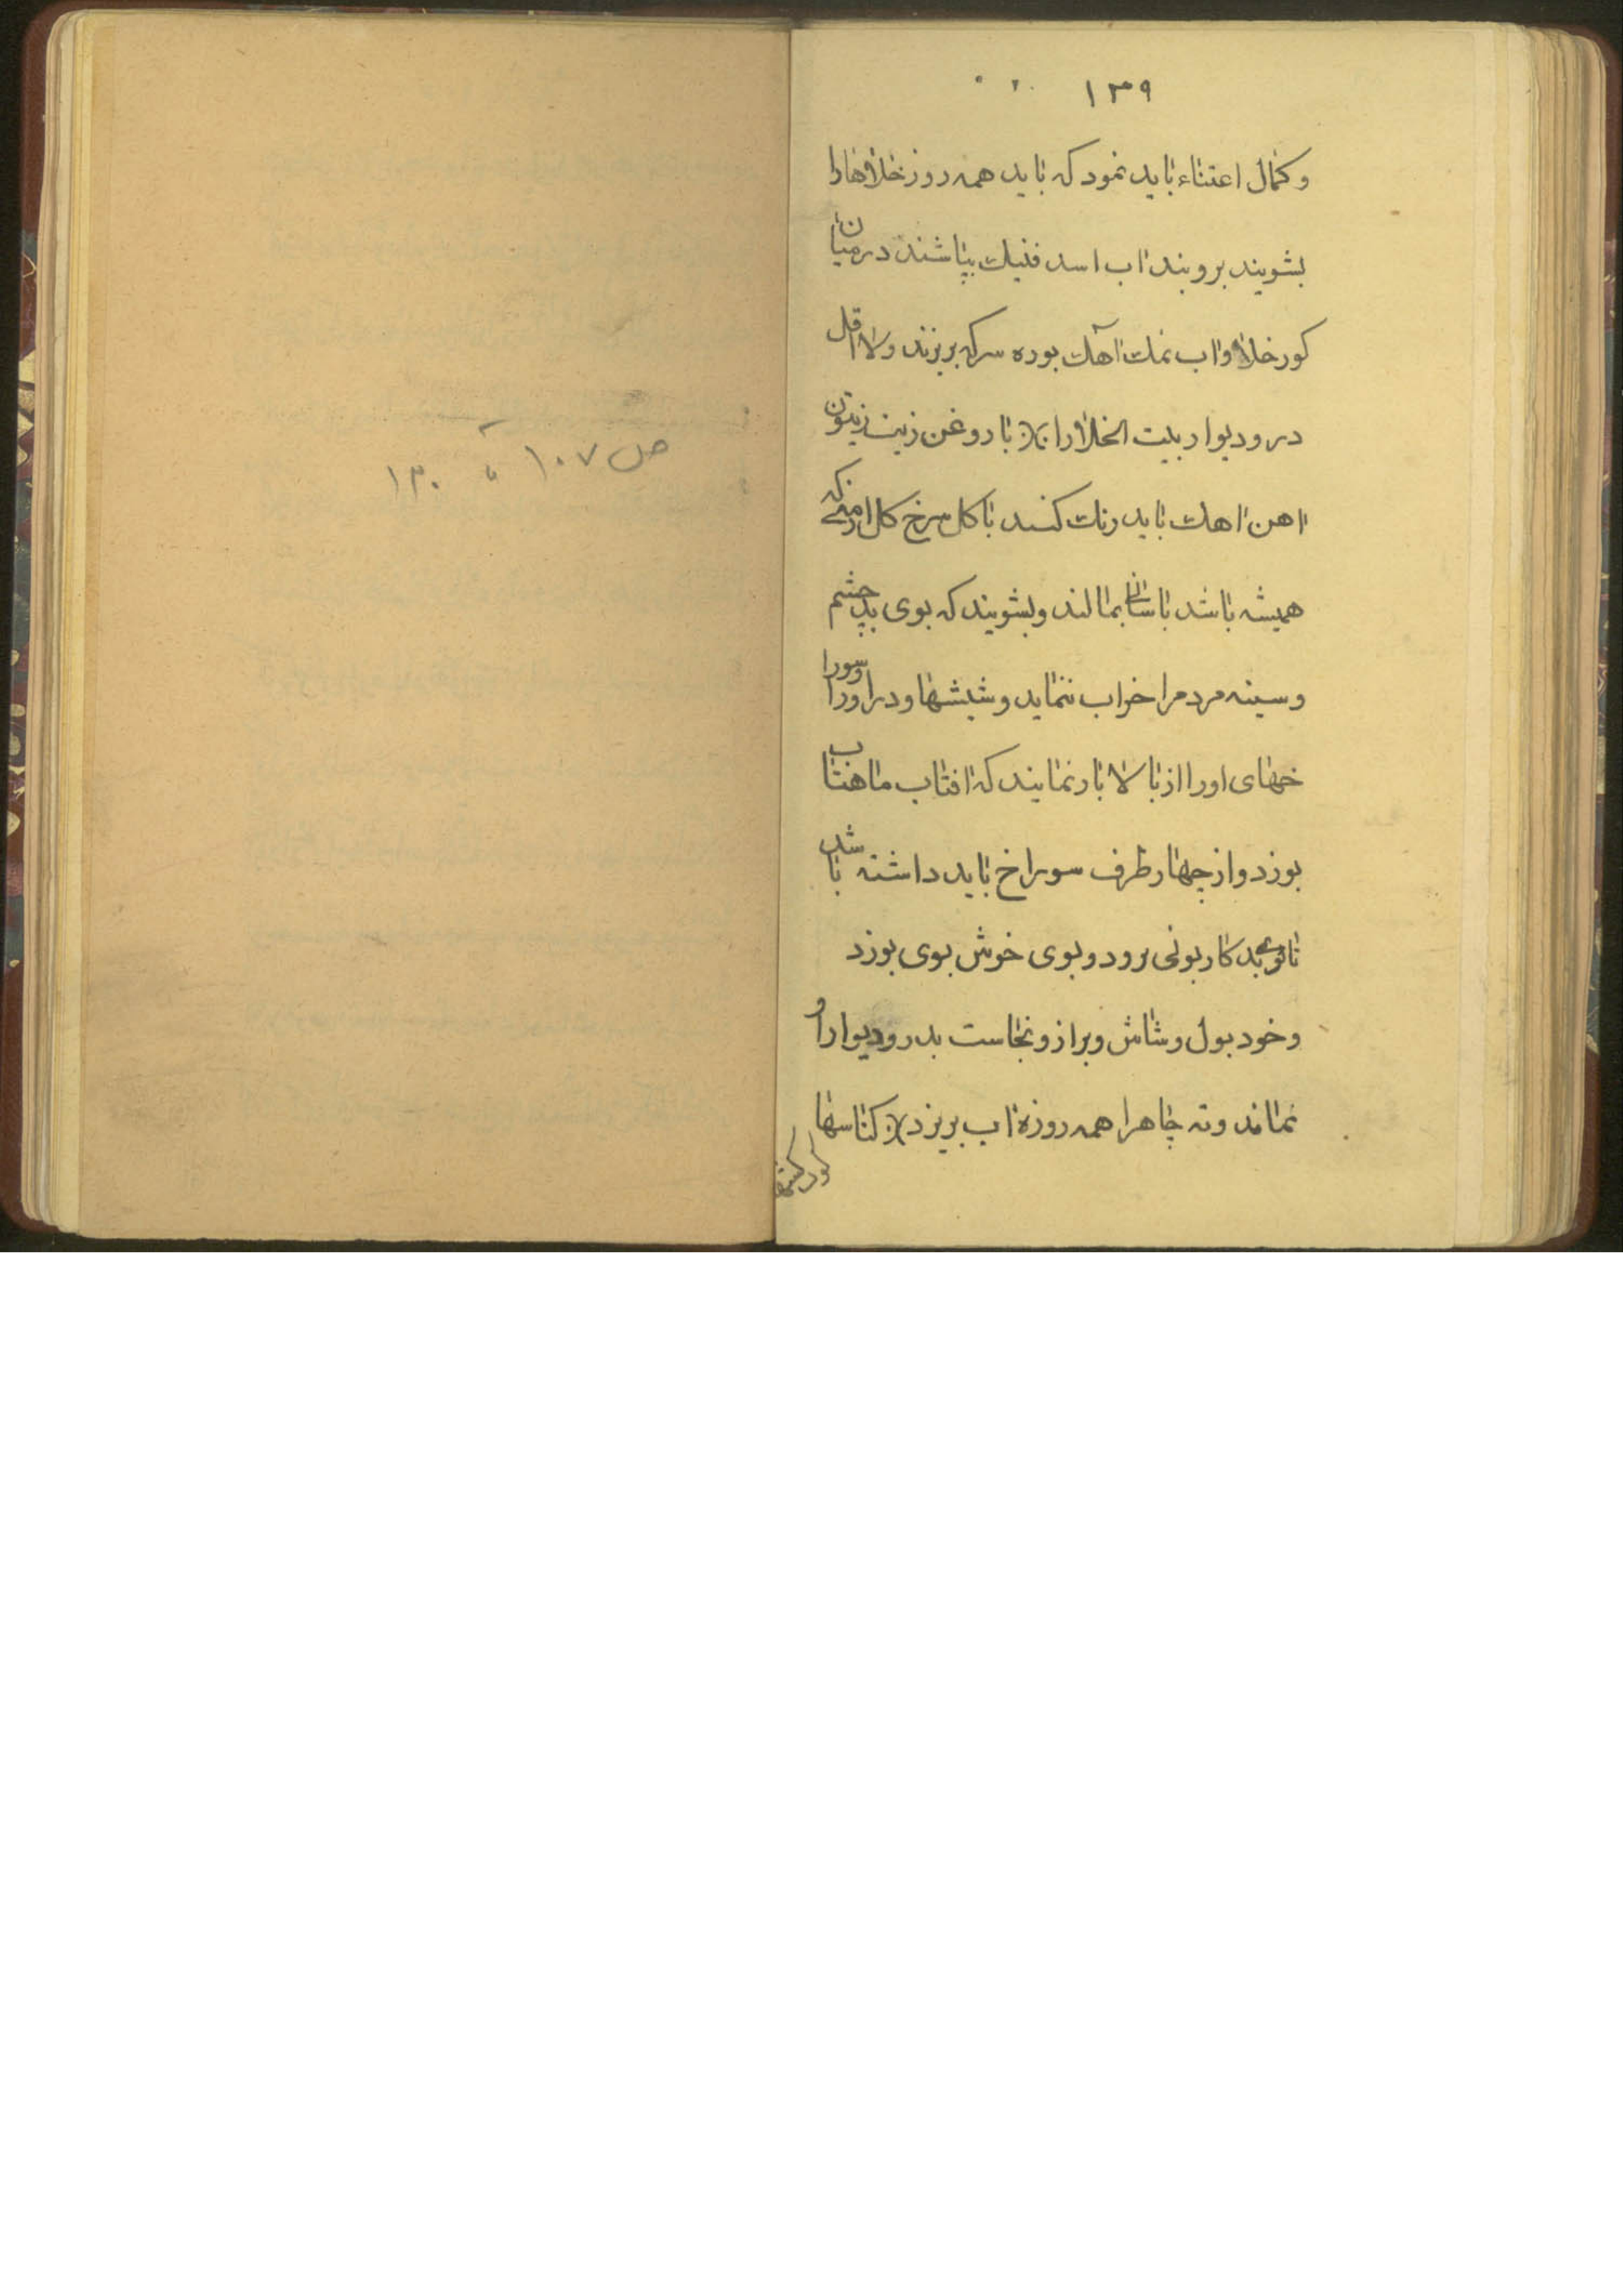 ۱۳۹
و کمال اعتناء باید نمود که باید همه روز خلاهارا
بشویند بروبند اب اسد فنیک بپاشند در میان
کور خلا و اب نمک اهک بوره سرکه بریزند ولا اقل
در و دیوار بیت الخلا را با روغن زیت زیتون
اهن اهک باید رنک کنند با کل سرخ کل ارمنی که
همیشه باشد باسانی بمالند و بشویند که بوی بد چشم
و سینه مردم را خراب ننماید و شیشها و در اورا و سورا
خهای اورا از بالا باز نمایند که افتاب ماهتاب
بوزد و از چهار طرف سوراخ باید داشته باشد
تا بوی بد کاربونی برود و بوی خوش بوی بوزد
و خود بول و شاش و براز و نجاست بدر و دیوار او
نماند و ته چاهرا همه روزه اب بریزد کناسها
کود کشها
ص ۱۰۷ تا ۱۳۰